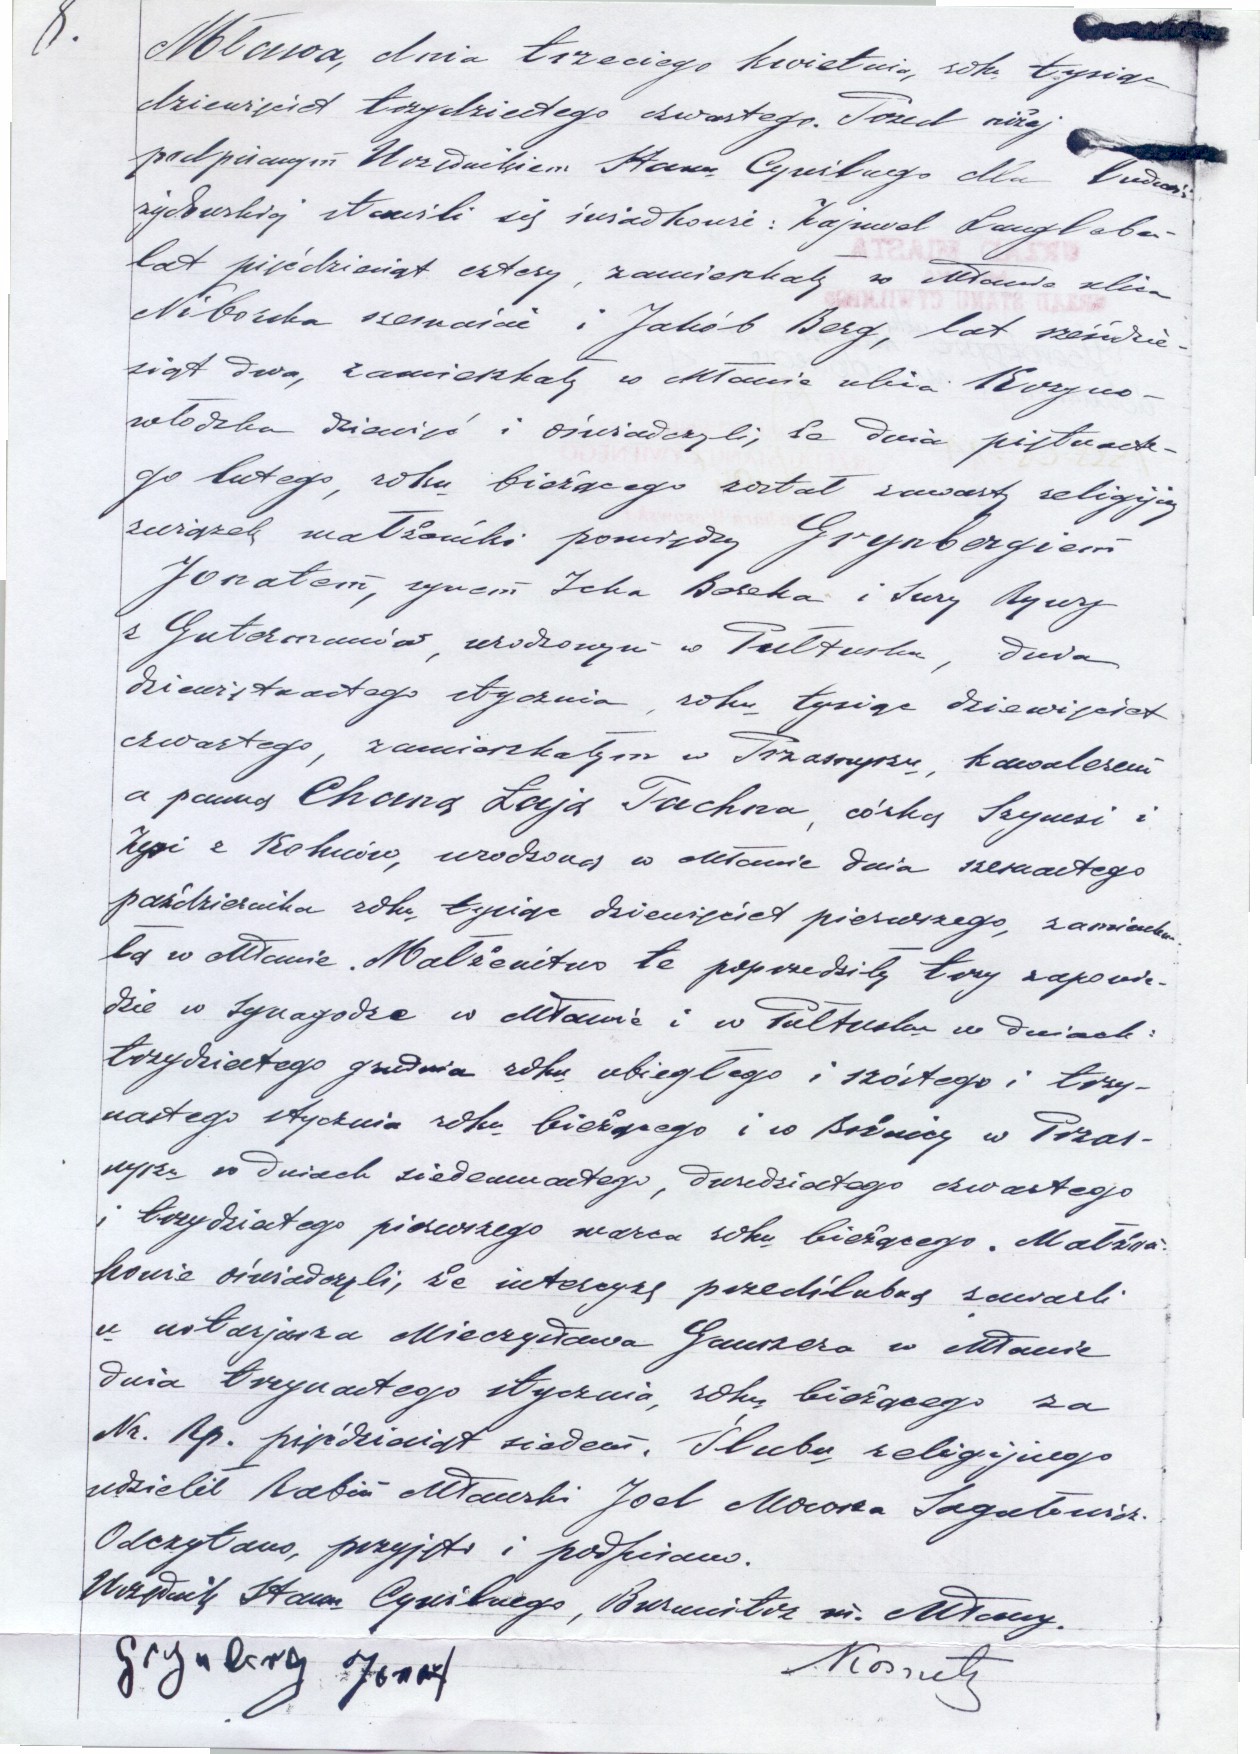 8.
Mława, dnia trzeciego kwietnia, roku tysiąc
dziewięćset trzydziestego czwartego. Przed niżej
podpisanym Urzędnikiem Stanu Cywilnego dla ludności
żydowskiej stawili się świadkowie: Zajnwel
lat pięćdziesiąt cztery, zamieszkały w Mławie ulica
Niborska szesnaście i Jakób Berg, lat sześćdzie-
siąt dwa, zamieszkały w Mławie ulica Krzyno-
włodzka dziewięć i oświadczyli, że dnia piętnaste-
go lutego, roku bieżącego został zawarty religijny
związek małżeński pomiędzy Grynbergiem
Jonatem, synem Icka Berka i Sury Rywy
z Gutermanów, urodzonym w Pułtusku, dnia
dziewiętnastego stycznia, roku tysiąc dziewięćset
czwartego, zamieszkałym w Przasnyszu, kawalerem
a panną Chaną Łają Tachna, córką Szymsi i
z Kohnów, urodzoną w Mławie dnia szesnastego
października roku tysiąc dziewięćset pierwszego, zamieszka-
łą w Mławie. Małżeństwo te poprzedziły trzy zapowie-
dzie w synagodze w Mławie i w Pułtusku w dniach:
trzydziestego grudnia roku ubiegłego i szóstego i trzy-
nastego stycznia roku bieżącego i w Bóżnicy w Przas-
nyszu w dniach siedemnastego, dwudziestego czwartego
i trzydziestego pierwszego marca roku bieżącego. Małżon-
kowie oświadczyli, że intercyzę przedślubną zawarli
u notarjusza Mieczysława Gauszera w Mławie
dnia trzynastego stycznia, roku bieżącego za
Nr. Rp. pięćdziesiąt siedem. Ślubu religijnego
udzielił Rabin Mławski Joel Mowsza Segałowicz.
Odczytano, przyjęto i podpisano.
Urzędnik Stanu Cywilnego, Burmistrz m. Mławy.
Grynberg Jonat
URZĄD MIASTA
URZĄD STANU CYWILNEGO